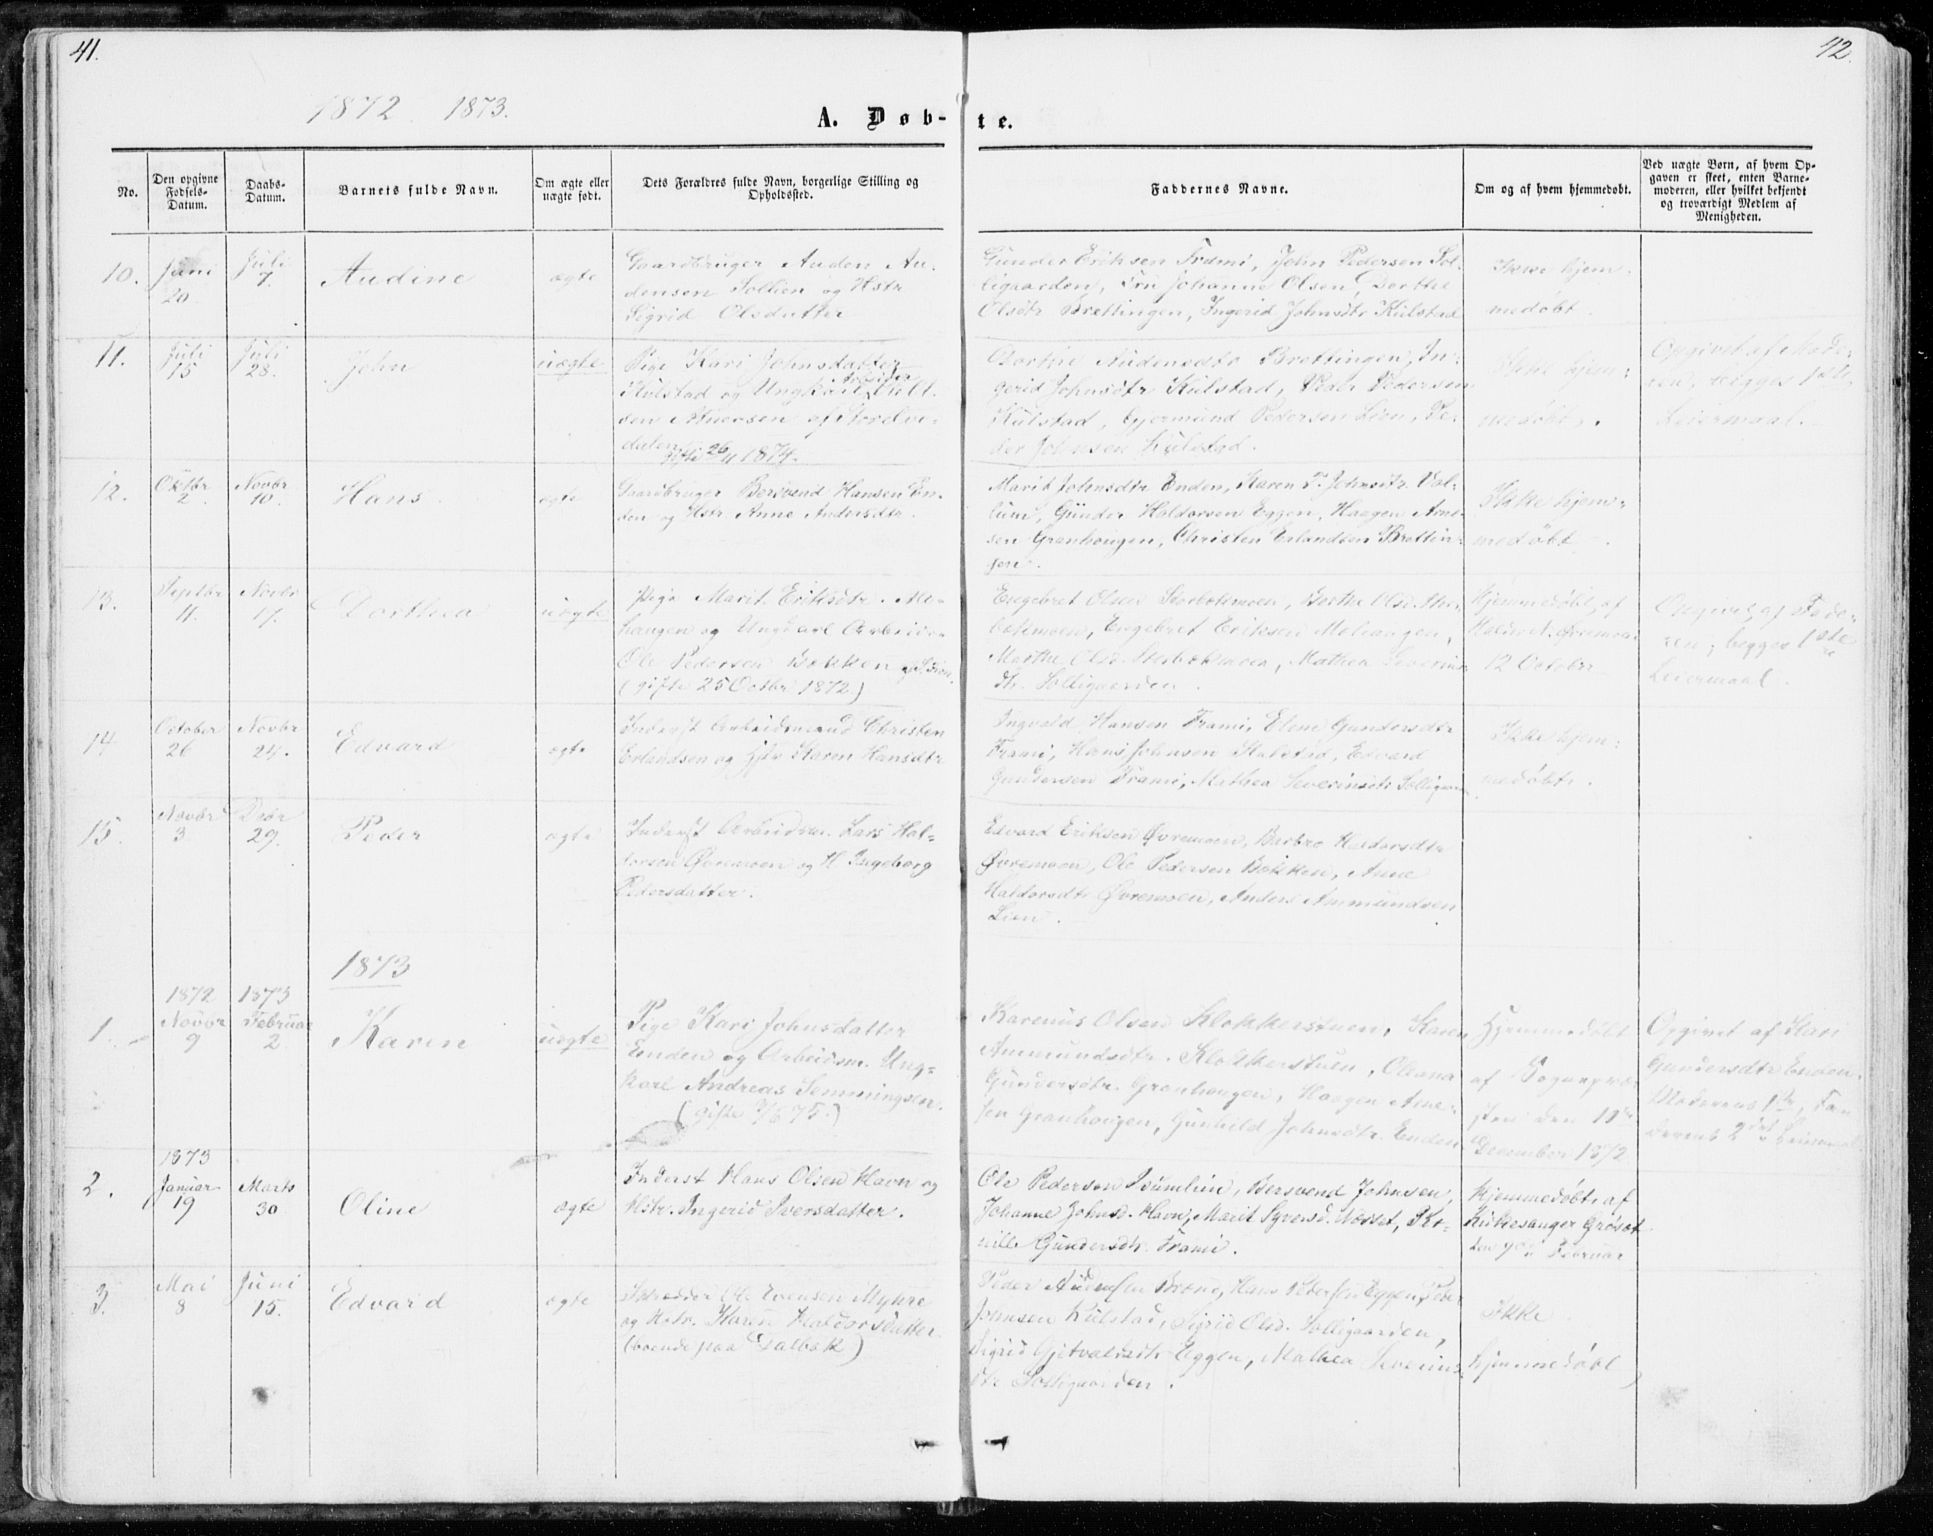 41.
42.
1872 1873.
A. Døb-te.
No.
Den opgivne Fødsels-Datum.
Daabs-Datum.
Barnets fulde Navn.
Om ægte eller uægte født.
Dets Forældres fulde Navn, borgerlige Stilling og Opholdssted.
Faddernes Navne.
Om og af hvem hjemmedøbt.
Ved uægte Børn, af hvem Opgaven er skeet, enten Barnemoderen, eller hvilket bekjendt og troværdigt Medlem af Menigheden.
10.
Juni 20
Juli 7
Audine
ægte
Gaardbruger Auden Au-
densen Sollien og Hstr
Sigrid Olsdatter
Gunder Eriksen Frami, John Pedersen Sol-
ligaarden, Fru Johanne Olsen, Dorthe
Olsdtr Brettingen, Ingerid Johnsdtr Kulstad
Ikke hjem-
medøbt.
11.
Juli 15
Juli 28.
John
uægte
Pige Kari Johnsdatter
Kulstad og Ungkarl Arbeider
gifte 26/11 1874.
Dorthe Audensdtr Brettingen, In-
gerid Johnsdtr Kulstad, Peder Pedersen
Kulstad, Gjermund Pedersen Lien, Pe-
der Johnsen Kulstad.
Ikke hjem-
medøbt.
Opgivet af Mode-
ren, begges 1ste
Leiermaal.
12.
Oktbr 2
Novbr 10.
Hans
ægte
Gaardbruger Bersvend Hansen En-
den og Hstr. Anne Andersdtr.
Marit Johnsdtr Enden, Karen P. Johnsdtr. Val-
lum, Gunder Haldorsen Eggen, Haagen Arne-
sen Granhougen, Christen Erlandsen Brettin-
gen.
Ikke hjem-
medøbt.
13.
Septbr 11.
Novbr 17.
Dorthea
uægte
Pige Marit Eriksdtr. Mo-
haugen og Ungkarl Arbeider
Ole Pedersen Bækken
(gifte 25 Octbr 1872.)
Engebret Olsen Storbækmoen, Berthe Olsd. Stor-
bækmoen, Engebret Eriksen Mohaugen,
Marthe Olsd. Storbækmoen, Mathea Severins-
dtr. Solligaarden.
Hjemmedøbt af
Haldor N. Øvremoen
12 October
Opgivet af Fade-
ren; begges 1ste
Leiermaal.
14
October 26
Novbr 24.
Edvard
ægte
Inderst Arbeidsmand Christen
Erlandsen og Hstr Karen Hansdtr
Ingvald Hansen Frami, Elene Gundersdtr
Frami, Hans Johnsen Kulstad, Edvard
Gundersen Frami, Mathea Severinsdtr Solligaard
Ikke hjem-
medøbt.
15.
Novbr 3
Decbr 29.
Peder
ægte
Inderst Arbeidsm. Lars Hal-
dorsen Øvremoen og H. Ingeborg
Pedersdatter.
Edvard Eriksen Øvremoen, Barbro Haldorsdtr
Øvremoen, Ole Pedersen Bækken, Anne
Haldorsdtr Øvremoen, Anders Ammundsen
Lien.
1873
1.
1872 Novbr 9
1873 Februar 2
Karen
uægte
Pige Kari Johnsdatter
Enden og Arbeidsm. Ung-
karl Andreas Semmingsen.
(gifte 75.)
Karenus Olsen Klokkerstuen, Karen
Ammundsdtr. Klokkerstuen, Oleana
Gundersdtr. Granhougen, Haagen Arne-
sen Granhougen, Gunhild Johnsdtr. Enden
Hjemmedøbt
af Sognepræ-
sten den 10de
December 1872
Opgivet af Kari
Gundersdtr Enden.
Moderens 1ste, Fa-
derens 2det Leiermaal
2.
1873 Januar 19
Marts 30
Oline
ægte
Inderst Hans Olsen Havn og
Hstr. Ingerid Iversdatter.
Ole Pedersen Ivumlien, Bersvend Johnsen,
Johanne Johnsd. Havn, Marit Syversd. Næsset, Per-
nille Gundersdtr. Frami.
Hjemmedøbt af
Kirkesanger Grøsæt
den 9de Februar
3.
Mai 8
Juni 15.
Edvard
ægte
Skrædder Ole Evensen Myhre
og Hstr. Karen Haldorsdatter
(boende paa Dalbæk)
Peder Audensen Bræne, Hans Pedersen Eggen, Peder
Johnsen Kulstad, Sigrid Olsd. Solligaarden,
Sigrid Gjetvaldsdtr Eggen, Mathea Severins-
dtr Solligaarden.
Ikke
hjemmedøbt